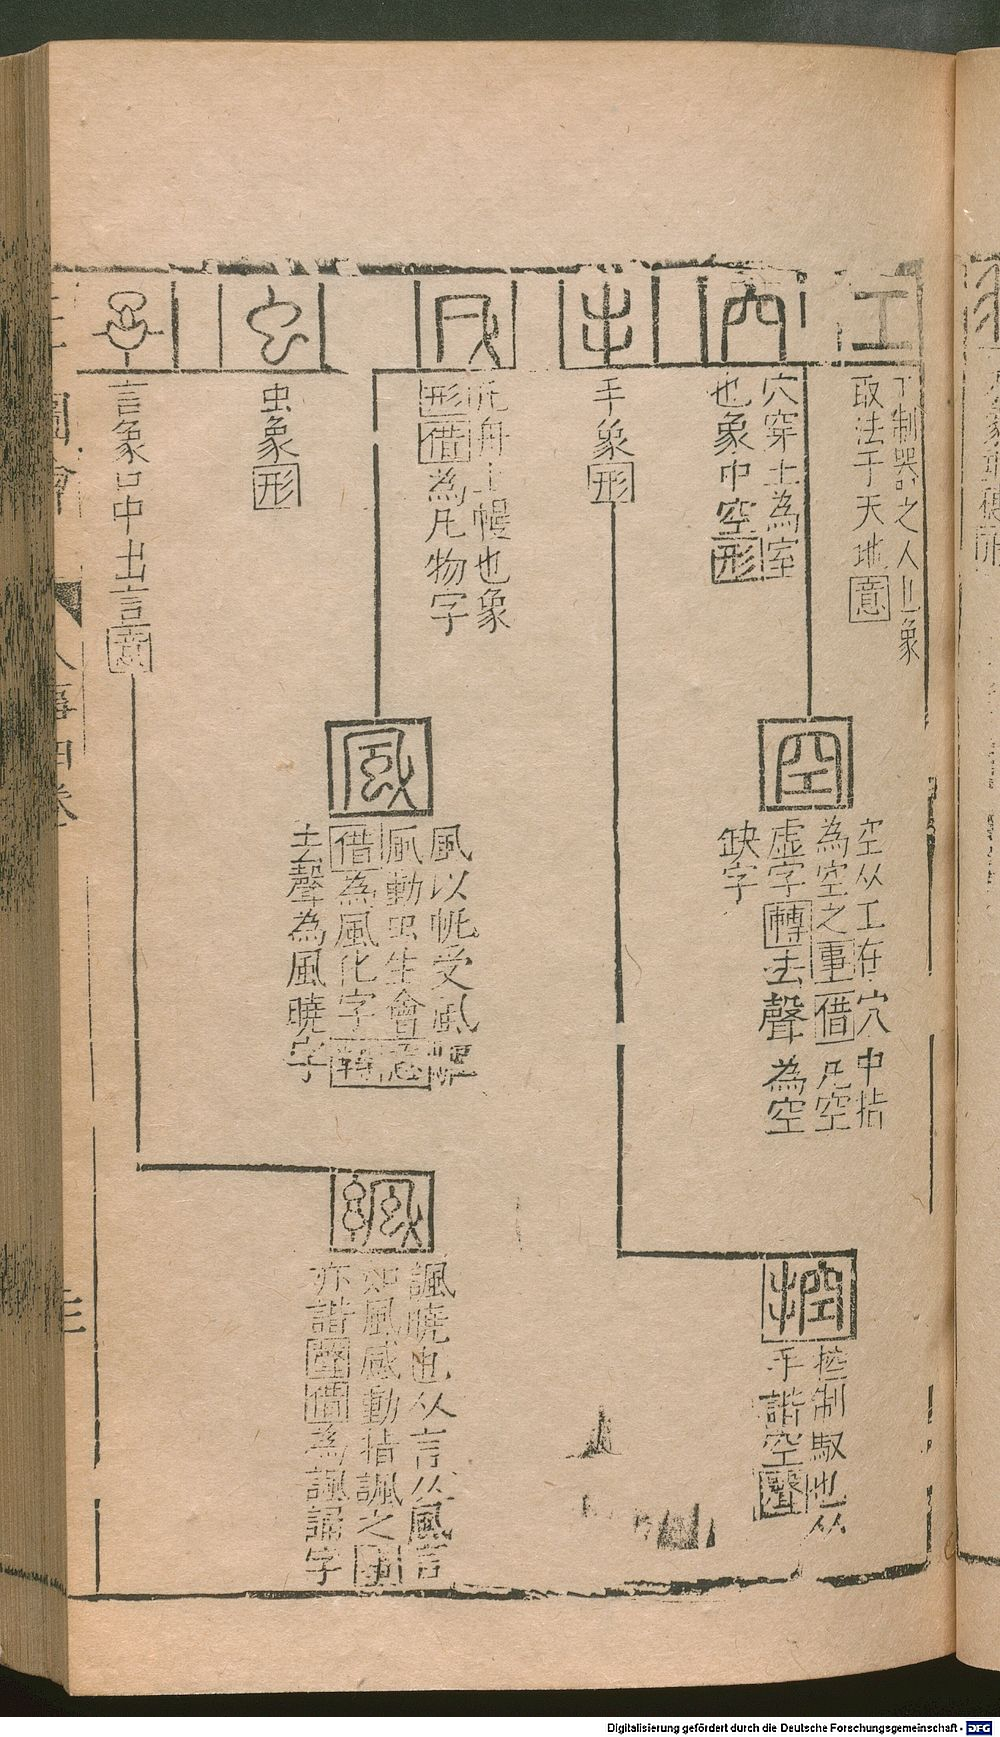 工
工制器之人也象
取法于天地意
穴
穴穿土為室
也象中空形
空
空从工在穴中指
為空之事借凡空
虛字轉去聲為空
缺字
手
手象形
控
控制馭也从
手諧空聲
凡
舟上幔也象
形借為凡物字
風
風以帆受風
風動虫生會意
借為風化字轉
去聲為風曉字
虫
虫象形
言
言象口中出言意
諷
諷曉也从言从風言
如風感動指諷之事
亦諧聲借為諷誦字
圖會
人事四卷
Digitalisierung gefördert durch die Deutsche Forschungsgemeinschaft - DFG